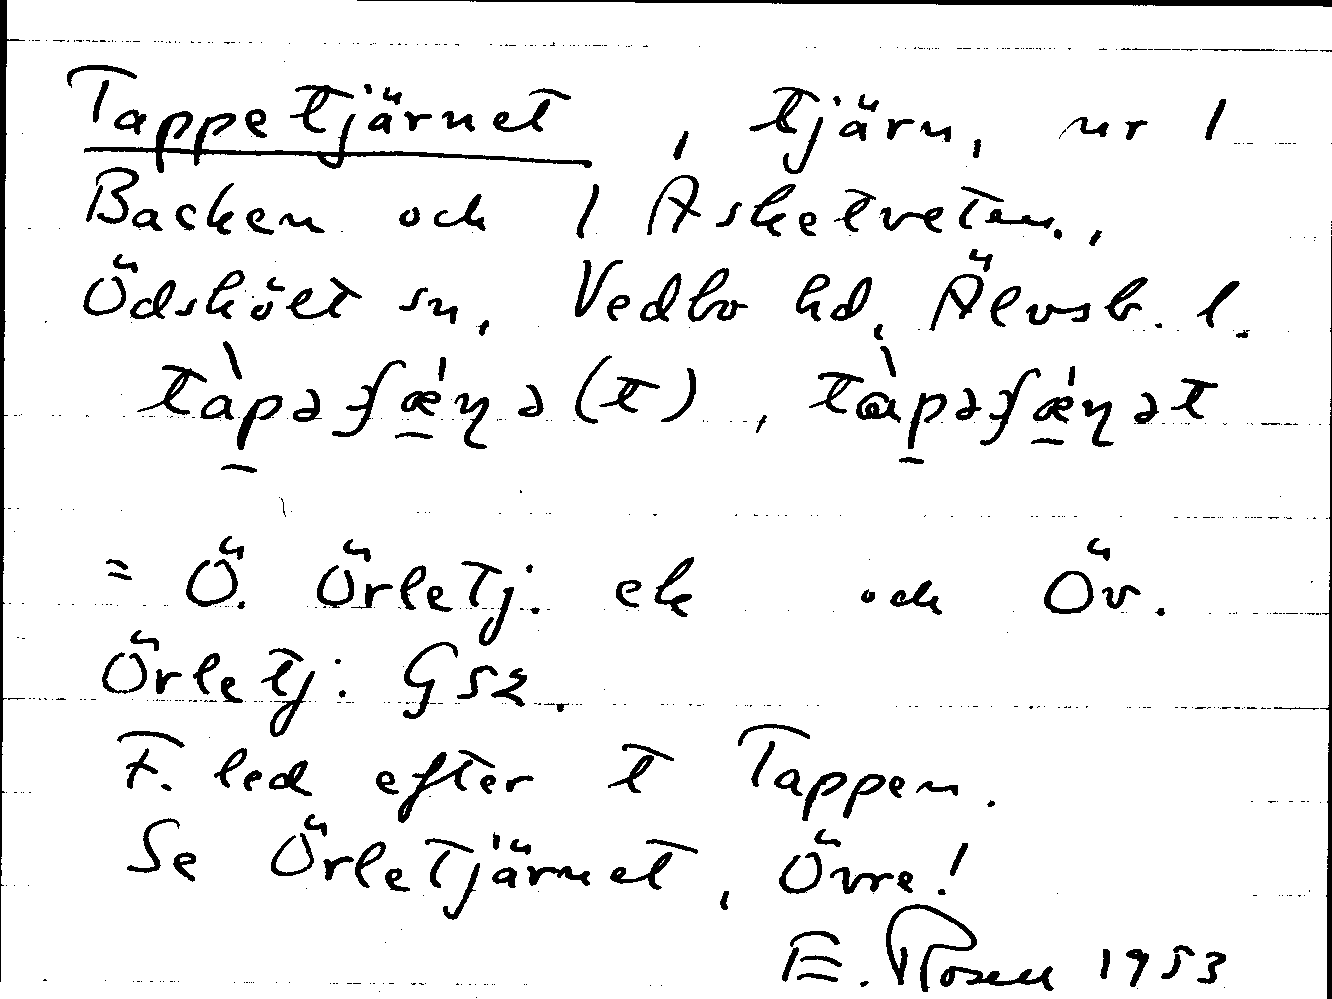 Tappetjärnet, tjärn, nr 1
Backen och 1 Asketveten.,
Ödskölt sn, Vedbo hd, Älvsb. l.
tàpəʃǽɳə(t), tàpəʃǽɳət
= Ö. Örletj. ek och Öv.
Örletj: G52.
F. led efter t Tappen.
Se Örletjärnet, Övre!
E. Rosell 1953